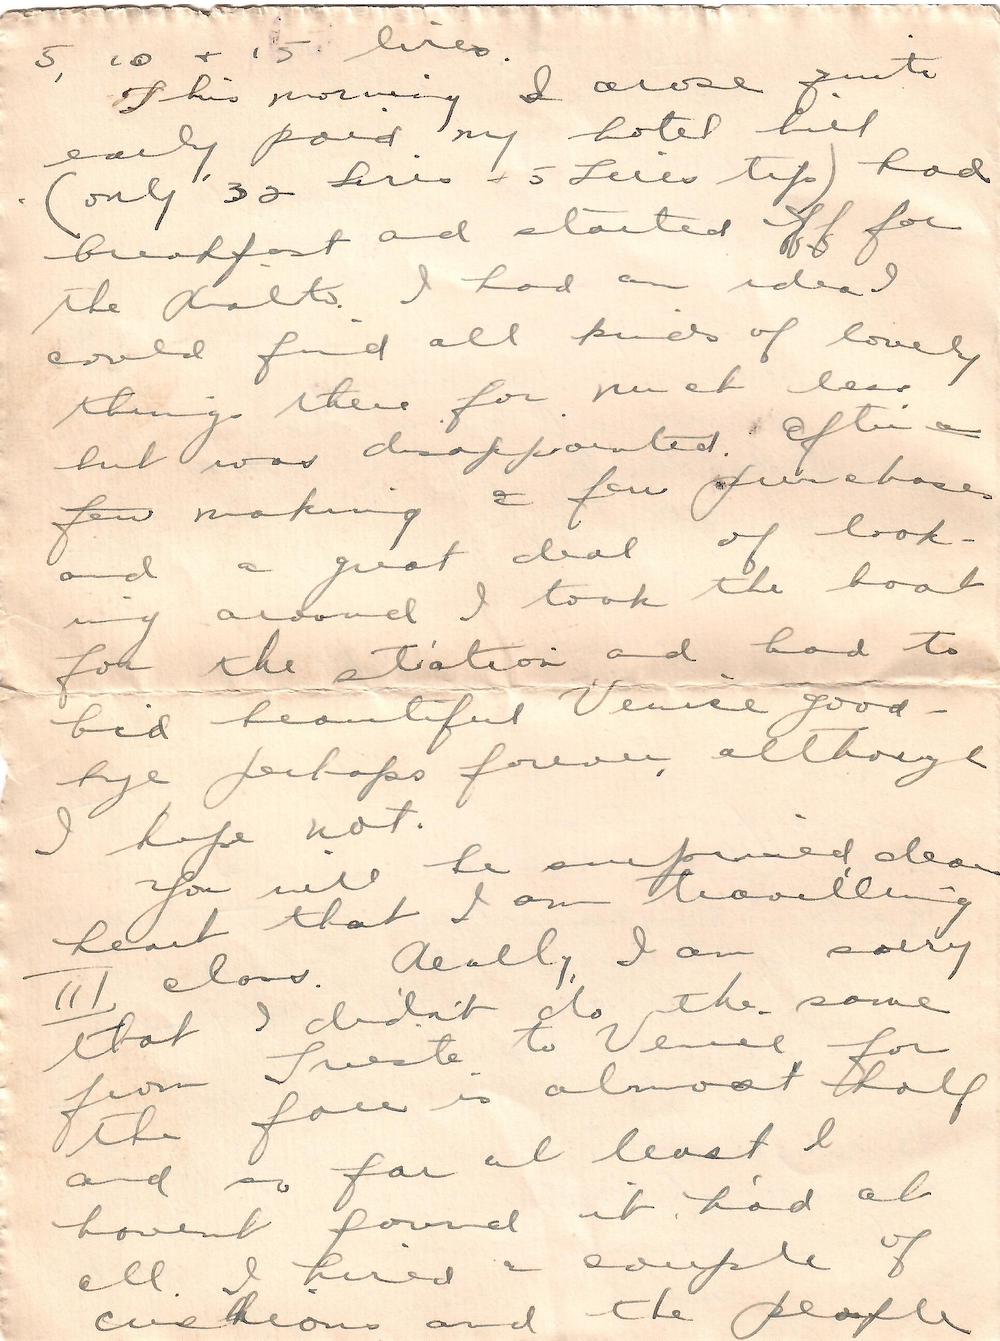 5, 10 + 15 lires.
This morning I arose quite
early paid my hotel bill
(only 32 Liris + 5 Liris tip) had
breakfast and started off for
the Rialto. I had an idea I
could find all kinds of lovely
things there for much less
but was disappointed. After a
few making a few purchases
and a great deal of look-
ing around I took the boat
for the station and had to
bid beautiful Venice good-
bye perhaps forever, although
I hope not.
You will be surprised, dear
heart that I am travelling
III class. Really, I am sorry
that I didn't do the same
from Trieste to Venice, for
the fare is almost half
and so far at least I
havent found it bad at
all. I hired a couple of
cushions and the people